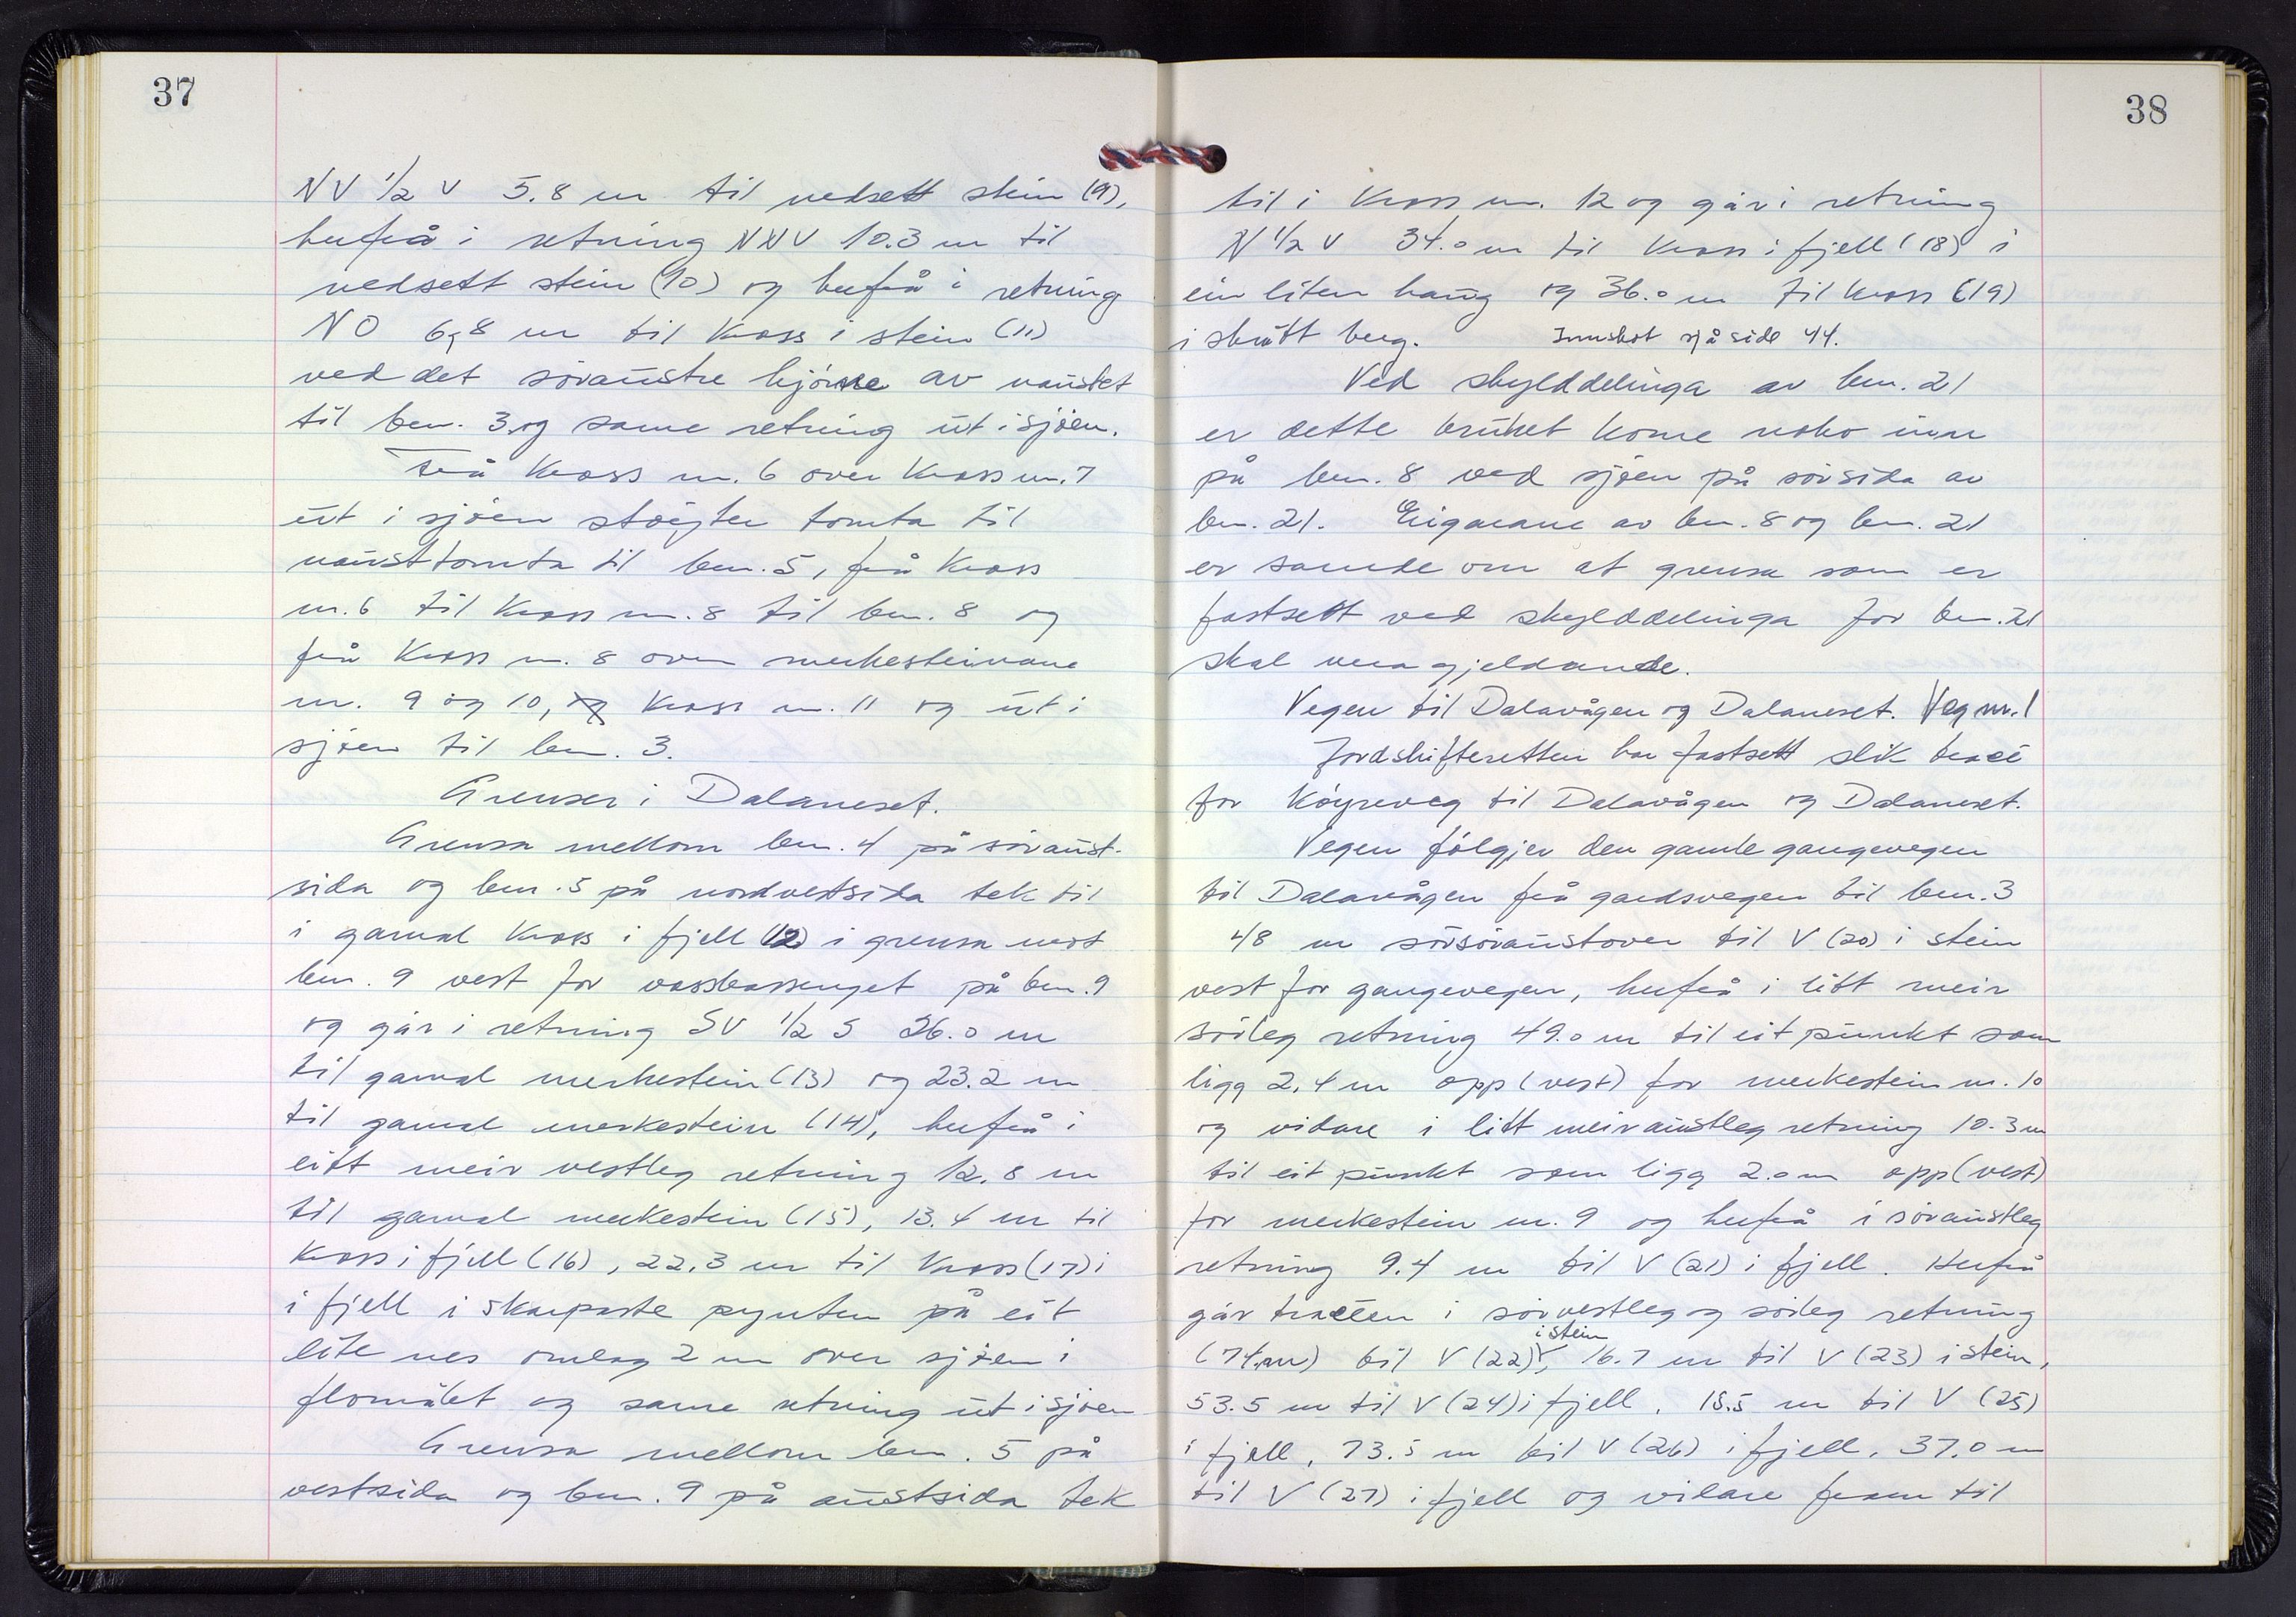 37
NV 1/2 V 5.8 m til nedsett stein (9),
herfrå i retning NNV 10.3 m til
nedsett stein (10) og herfrå i retning
NO 6,8 m til kross i stein (11)
ved det søraustre hjørne av naustet
til bnr. 3 og same retning ut i sjøen.
Frå kross nr. 6 over kross nr. 7
ut i sjøen støyter tomta til
nausttomta til bnr. 5, frå kross
nr. 6 til kross nr. 8 til bnr. 8 og
frå kross nr. 8 over merkesteinane
nr. 9 og 10, og kross nr. 11 og ut i
sjøen til bnr. 3.
Grenser i Dalaneset.
Grensa mellom bnr. 4 på søraust-
sida og bnr. 5 på nordvestsida tek til
i gamal kross i fjell (12) i grensa mot
bnr. 9 vest for vassbassenget på bnr. 9
og går i retning SV 1/2 S 26.0 m
til gamal merkestein (13) og 23.2 m
til gamal merkestein (14), herfrå i
litt meir vestleg retning 12.8 m
til gamal merkestein (15), 13.4 m til
kross i fjell (16), 22.3 m til kross (17) i
i fjell i skarpaste pynten på eit
lite nes omlag 2 m over sjøen i
flomålet og same retning ut i sjøen
Grensa mellom bnr. 5 på
vestsida og bnr. 9 på austsida tek
38
til i kross nr. 12 og går i retning
N 1/2 V 34.0 m til kross i fjell (18) i
ein liten haug og 36.0 m til kross (19)
i skrått berg. Innskot sjå side 44.
Ved skylddelinga av bnr. 21
er dette bruket kome noko inn
på bnr. 8 ved sjøen på sørsida av
bnr. 21. Eigarane av bnr. 8 og bnr. 21
er samde om at grensa som er
fastsett ved skylddelinga for bnr. 21
skal vera gjeldande.
Vegen til Dalavågen og Dalaneset. Veg nr. 1
Jordskifteretten har fastsett slik trasé
for køyreveg til Dalavågen og Dalaneset.
Vegen følgjer den gamle gangevegen
til Dalavågen frå gardsvegen til bnr. 3
48 m sørsøraustover til V (20) i stein
vest for gangevegen, herfrå i litt meir
sørleg retning 49.0 m til eit punkt som
ligg 2,4 m opp (vest) for merkestein nr. 10
og vidare i litt meir austleg retning 10.3 m
til eit punkt som ligg 2.0 m opp (vest)
for merkestein nr. 9 og herfrå i søraustleg
retning 9.4 m til V (21) i fjell. Herfrå
går traséen i sørvestleg og sørleg retning
i stein
(74 m) til V (22), 16.7 m til V (23) i stein,
53.5 m til V (24) i fjell, 15.5 m til V (25)
i fjell, 73.5 m til V (26) i fjell, 37.0 m
til V (27) i fjell og vidare fram til